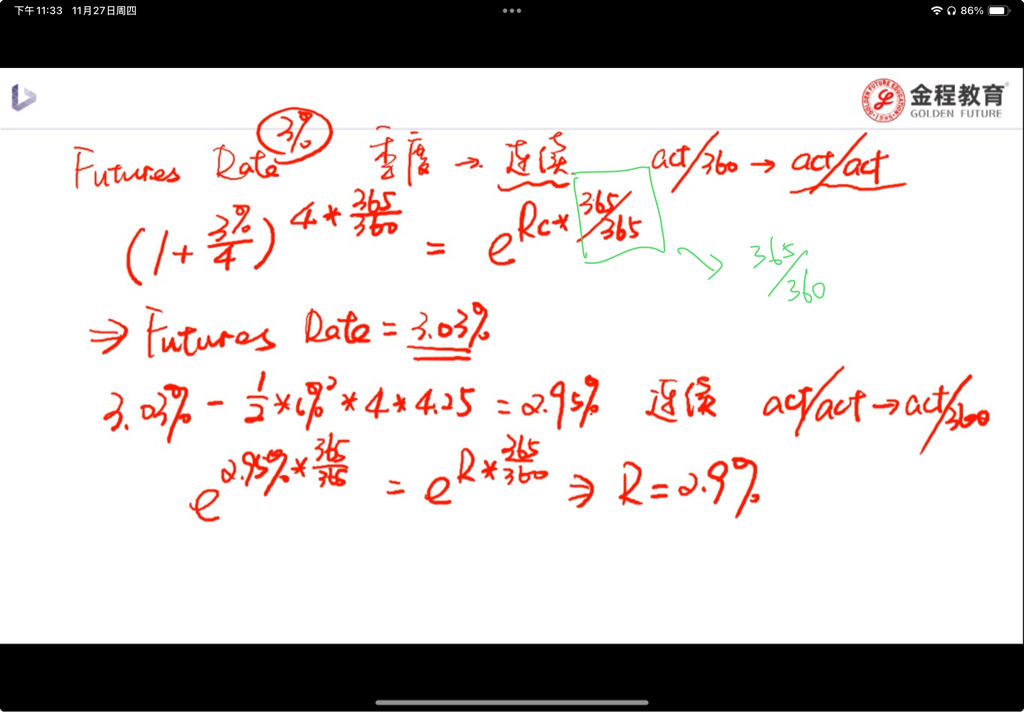 下午11:33 11月27日周四
86%
金程教育
GOLDEN FUTURE
Futures Rate 3% 季度 → 连续 act/360 → act/act
(1 + 3%/4)^(4 * 365/360) = e^(Rc * 365/365) → 365/360
⇒ Futures Rate = 3.03%
3.03% - 1/2 * 1%² * 4 * 4.25 = 2.95% 连续 act/act → act/360
e^(2.95% * 365/365) = e^(R * 365/360) ⇒ R = 2.9%